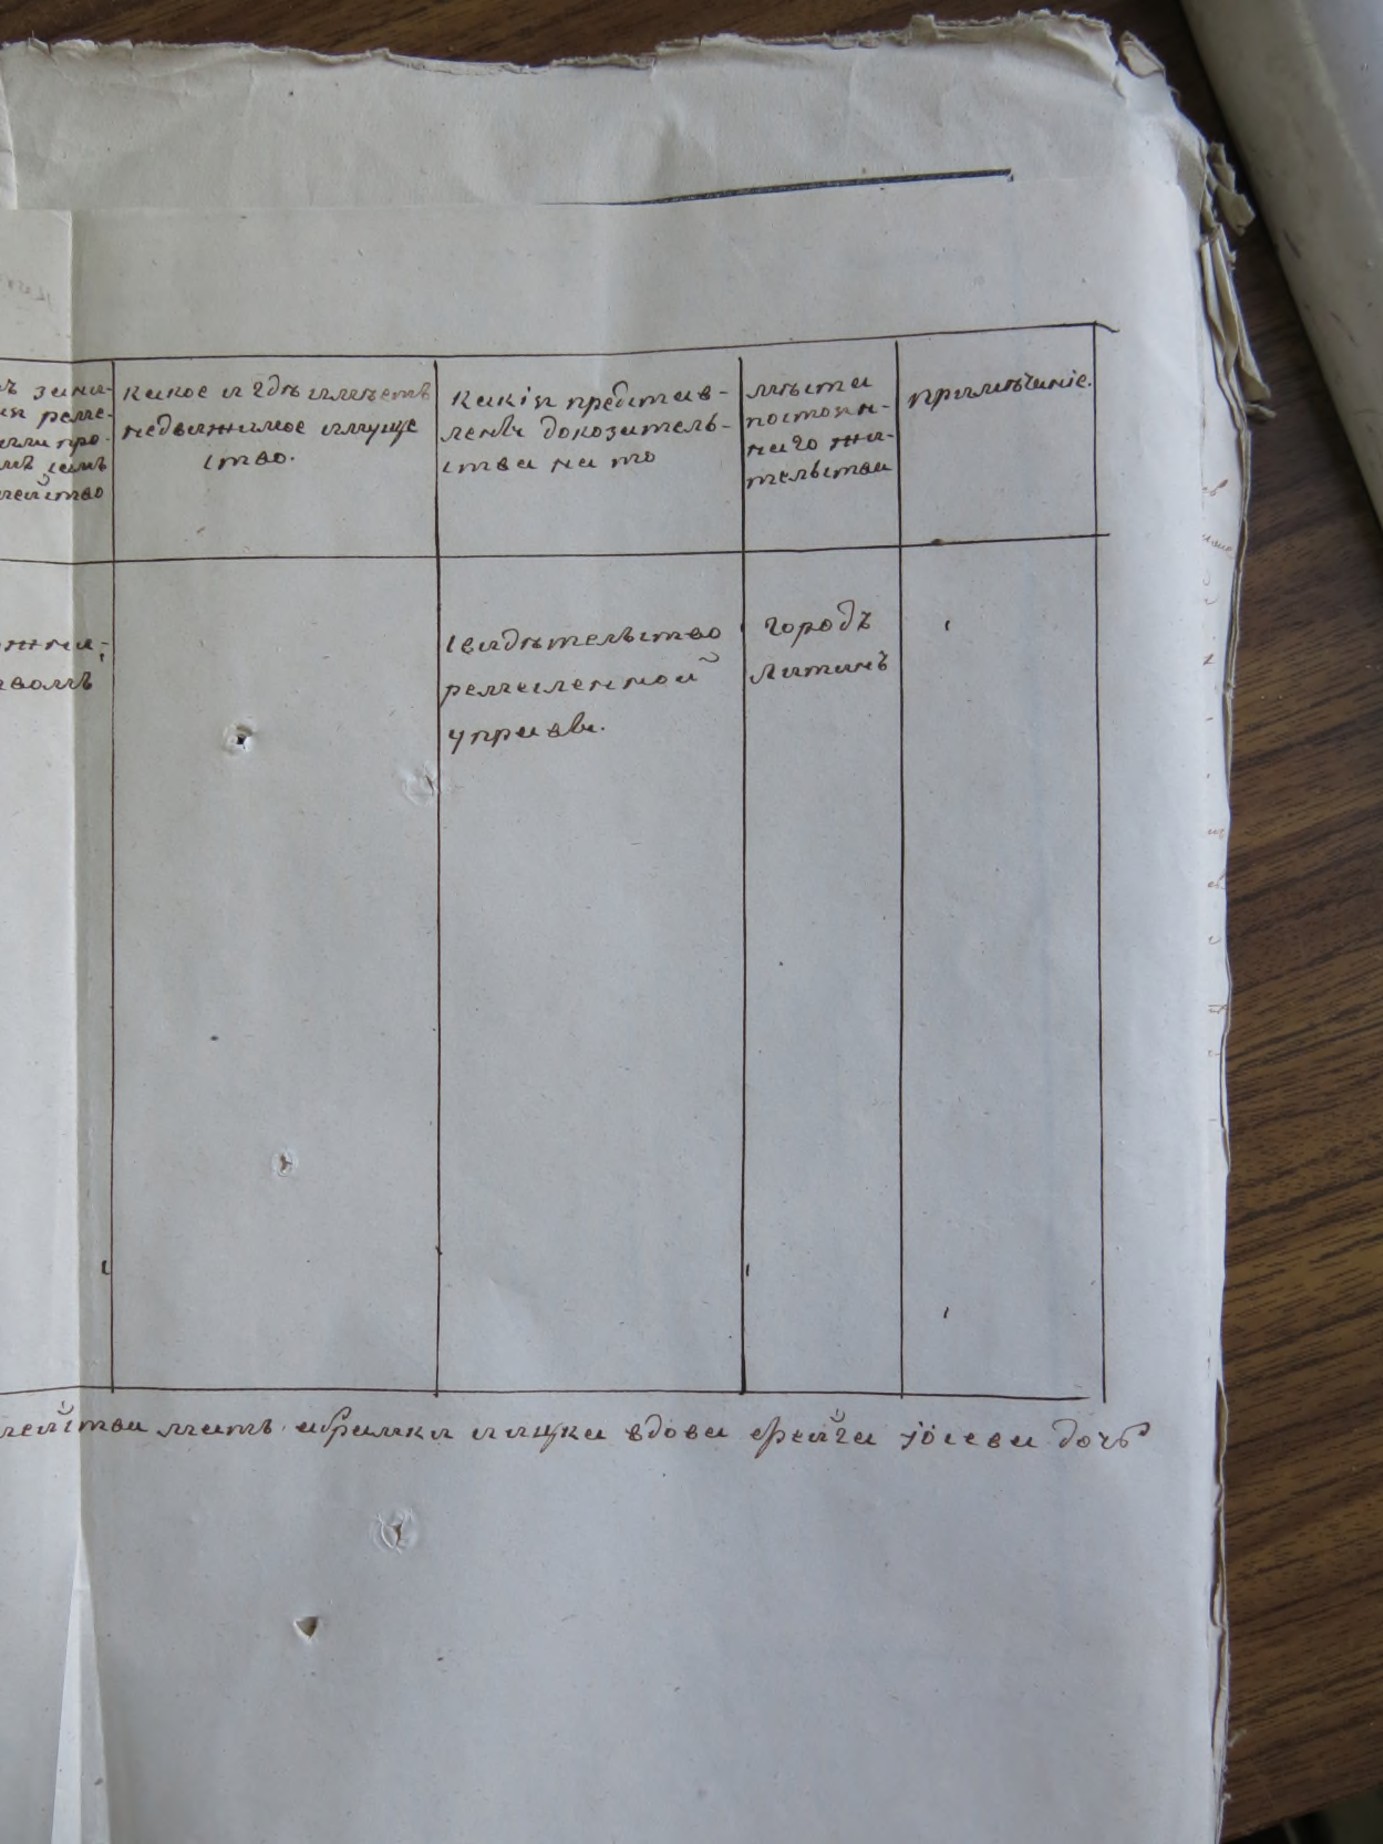 ъ зани-
ия реме-
или про-
мъ самъ
мейство
какое и гдѣ имѣетъ
недвижимое имуще
ство.
какія представ-
лены доказатель-
ства на то
мѣста
постоян-
наго жи-
тельства
примѣчаніе.
свидѣтельство
ремесленной
управы.
городъ
Литинъ
мейства мать абрамка ицка вдова фейга іосева дочь